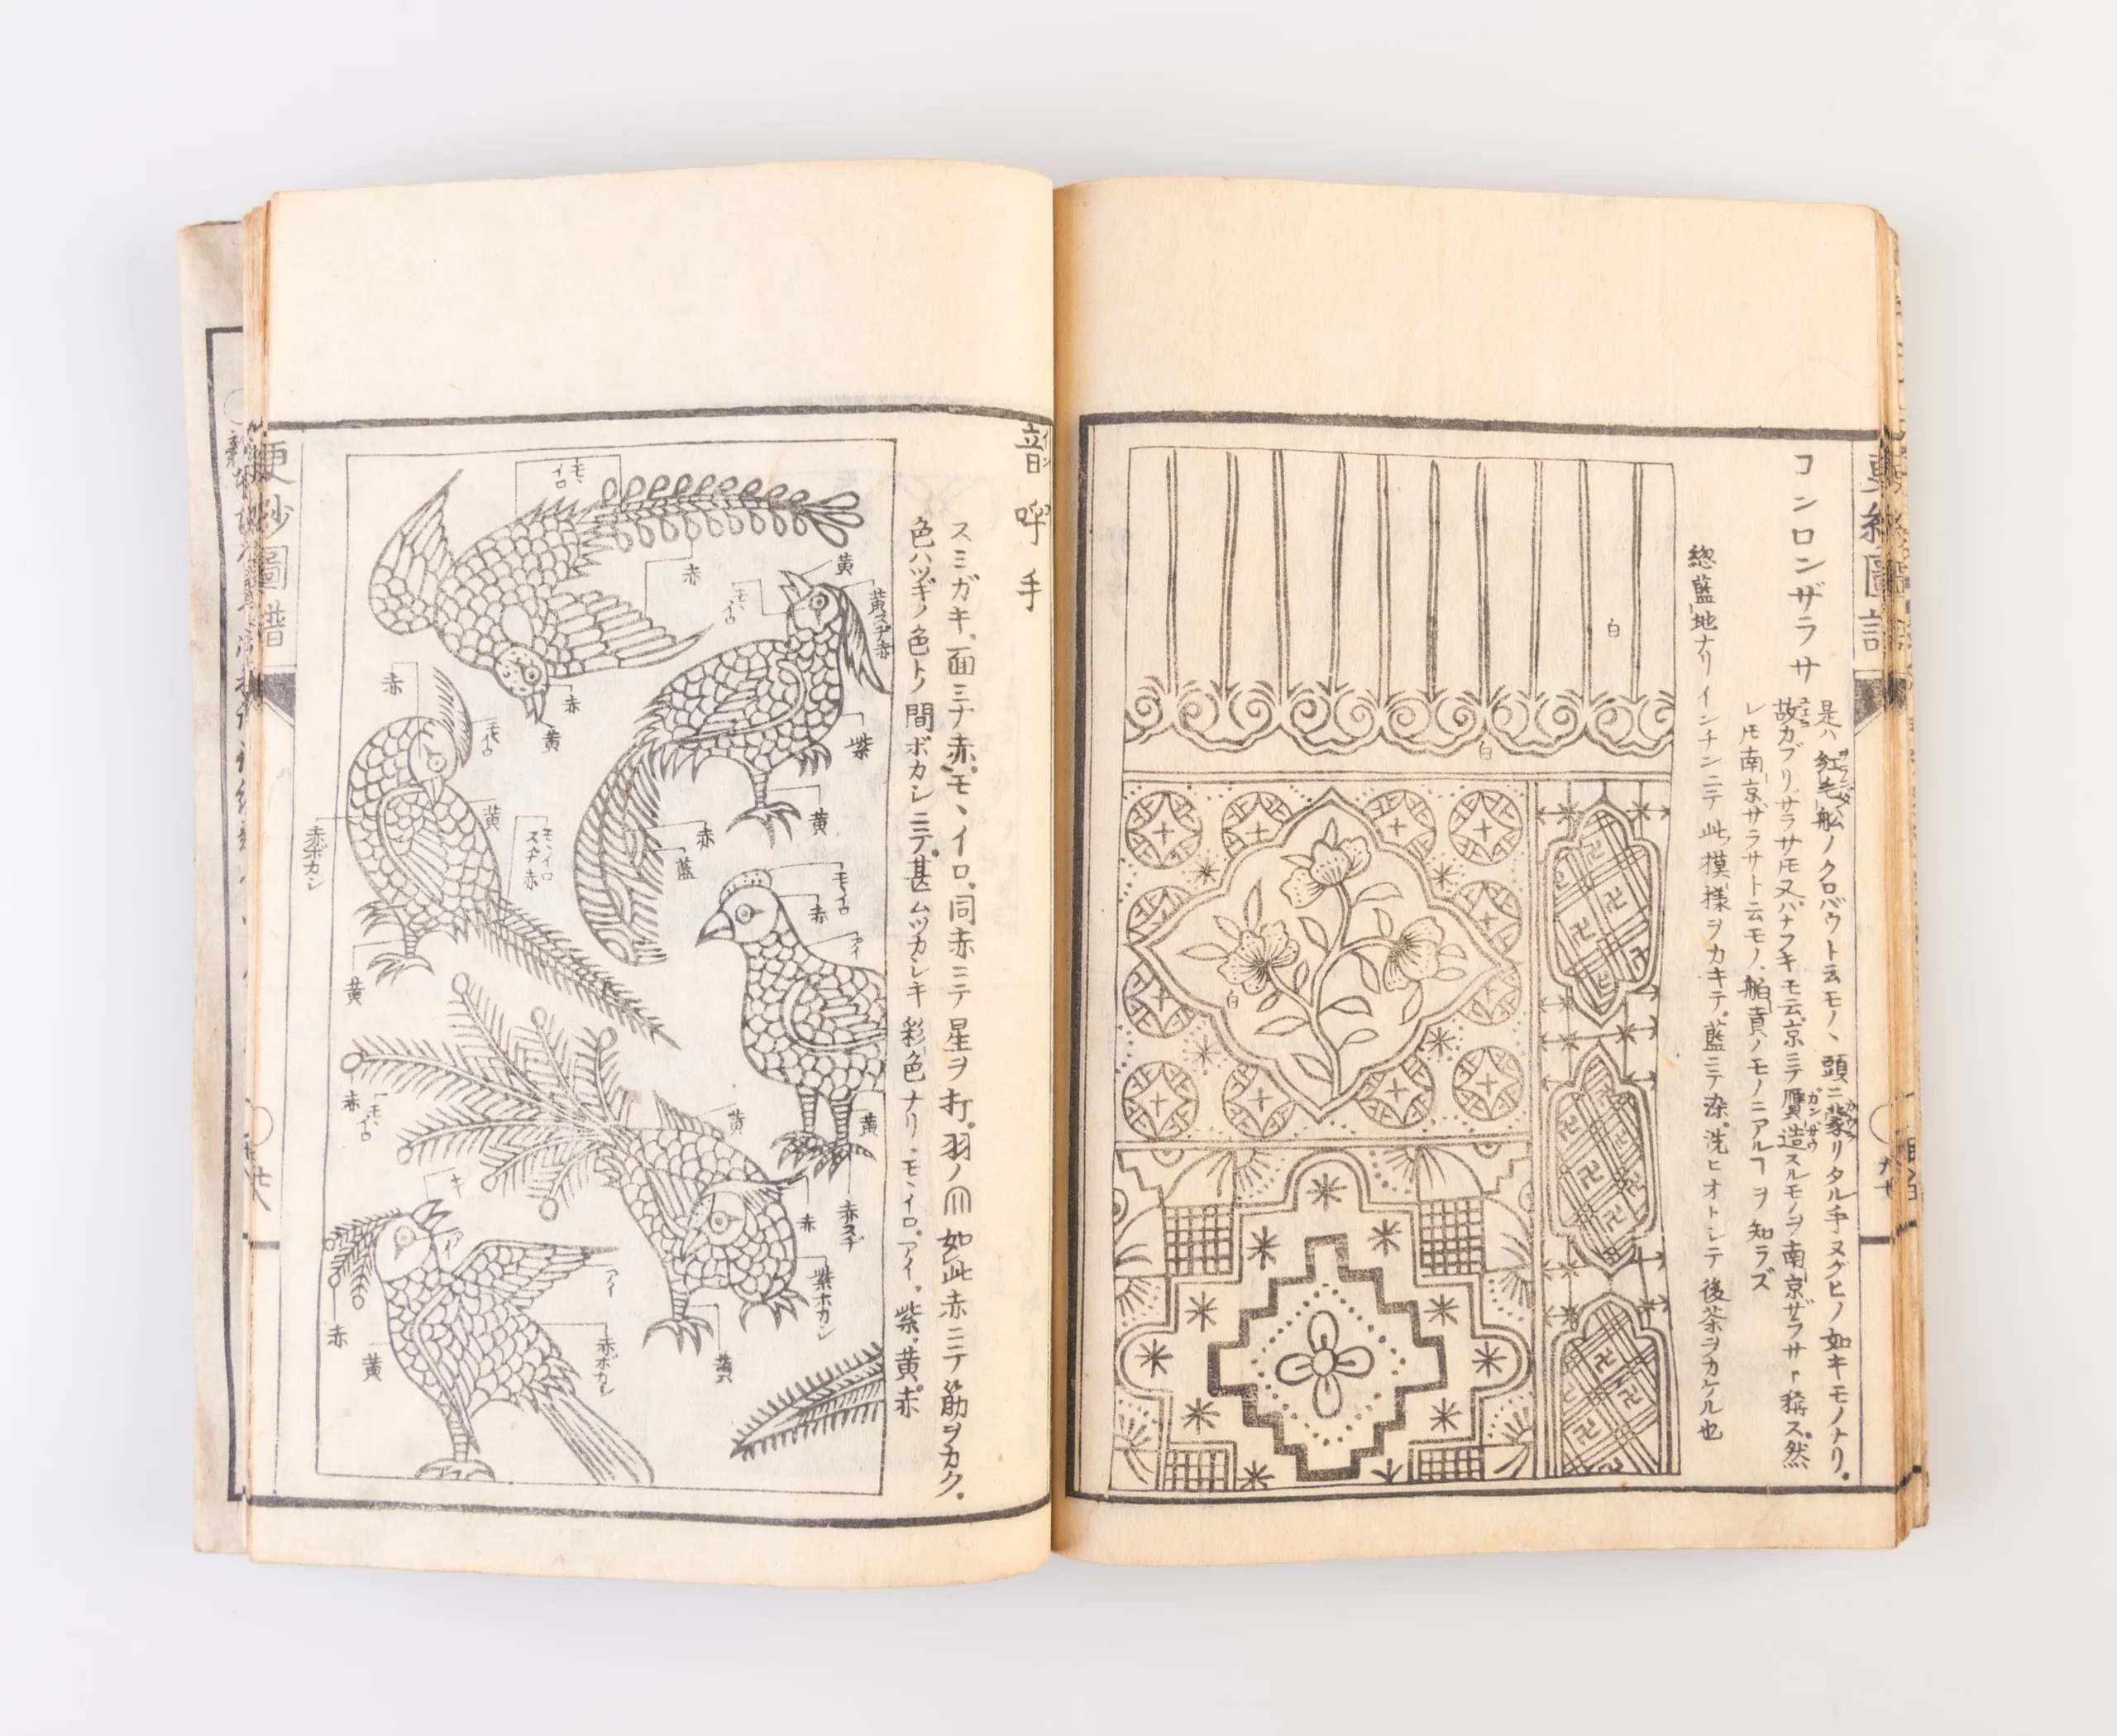 コンロンザラサ
是ハ紅毛船ノクロバウト云モノヽ頭ニ蒙リタル手ヌグヒノ如キモノナリ。
故カブリザラサ𪜈又ハナフキモ云京ニテ贋造スルモノヲ南京ザラサト稱ス。然
レ𪜈南京ザラサト云モノ、舶賣ノモノニアルヿヲ知ラズ
惣藍地ナリインチンニテ此摸様ヲカキテ。藍ニテ染。洗ヒオトシテ後茶ヲカケル也
白
白
白
音呼手
スミガキ。面ミナ赤。モヽイロ。同赤ニテ星ヲ打。羽ノ 如此赤ニテ筋ヲカク。
色ハツギノ色トノ間ボカシニテ。甚ムツカシキ彩色ナリ。モヽイロ。アイ。紫。黄。赤
モヽイロ
赤
黄
モヽイロ
黄スヂ赤
赤
黄
紫
黄
赤
藍
赤
モヽイロ
黄
赤ボカシ
モヽイロスヂ赤
黄
モヽイロ
赤
アイ
黄
赤
モヽイロ
黄
赤
赤スヂ
紫ホカシ
黄
キ
アイ
アイ
赤
黄
赤ボカシ
更紗圖譜